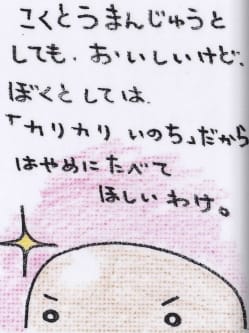 こくとうまんじゅうと
しても、おいしいけど、
ぼくとしては、
「カリカリ いのち」だから
はやめにたべて
ほしいわけ。